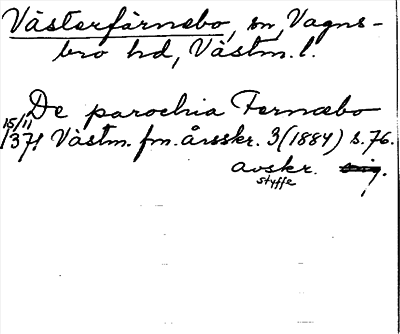 Västerfärnebo, sn, Vagns-
bro hd, Västm. l.
De parochia Fernæbo
15/11
1371 Västm. fm. årsskr. 3 (1884) s. 76.
avskr.
styffe